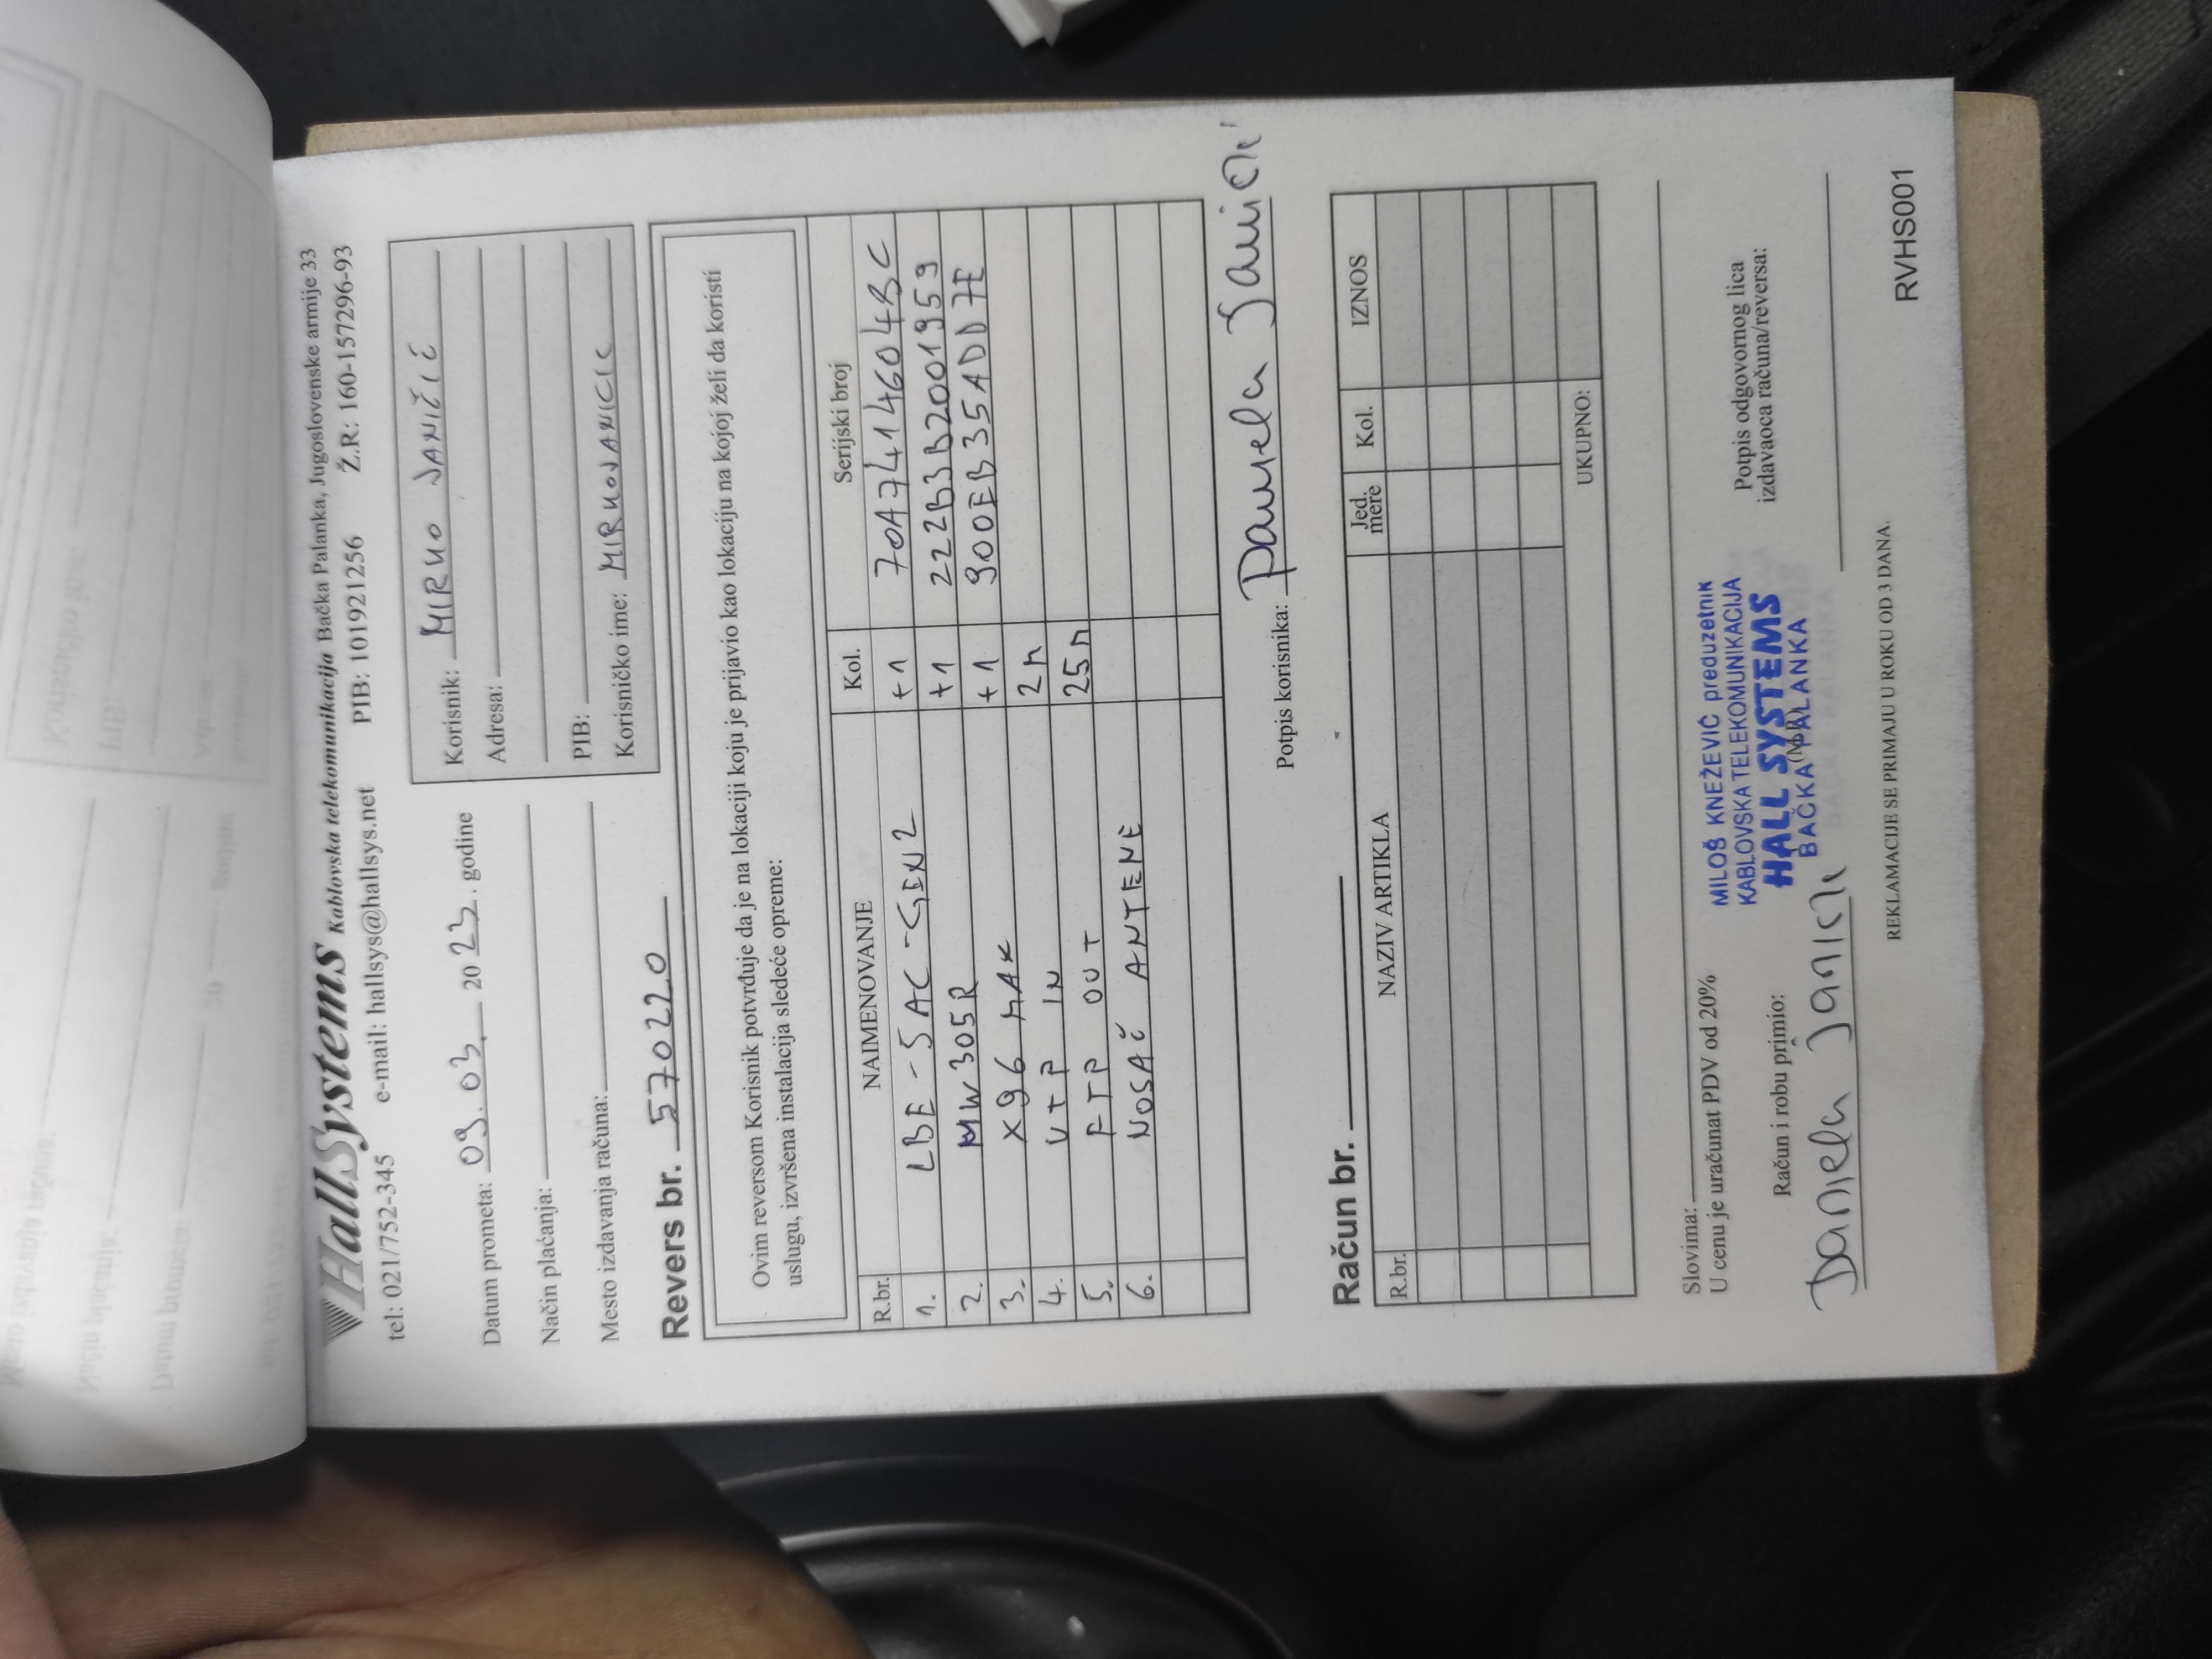 HallSystems Kablovska telekomunikacija Bačka Palanka, Jugoslovenske armije 33
tel: 021/752-345 e-mail: hallsys@hallsys.net PIB: 101921256 Ž.R: 160-157296-93
Datum prometa: 09.03. 2023. godine
Način plaćanja:
Mesto izdavanja računa:
Korisnik: MIRKO JANIČIĆ
Adresa:
PIB:
Korisničko ime: MIRKOJANICIC
Revers br. 570220
Ovim reversom Korisnik potvrđuje da je na lokaciji koju je prijavio kao lokaciju na kojoj želi da koristi
uslugu, izvršena instalacija sledeće opreme:
R.br. NAIMENOVANJE Kol. Serijski broj
1. LBE-5AC-GEN2 +1 70A7414604BC
2. MW305R +1 222B3B2001959
3. X96 MAX +1 900EB35ADD7E
4. UTP IN 2m
5. FTP OUT 25m
6. NOSAČ ANTENE
Potpis korisnika: Daniela Janičić
Račun br.
R.br. NAZIV ARTIKLA Jed. mere Kol. IZNOS
UKUPNO:
Slovima:
U cenu je uračunat PDV od 20%
Račun i robu primio:
Daniela Janičić
MILOŠ KNEŽEVIĆ preduzetnik
KABLOVSKA TELEKOMUNIKACIJA
HALL SYSTEMS
(M.P.)
BAČKA PALANKA
Potpis odgovornog lica
izdavaoca računa/reversa:
REKLAMACIJE SE PRIMAJU U ROKU OD 3 DANA.
RVHS001